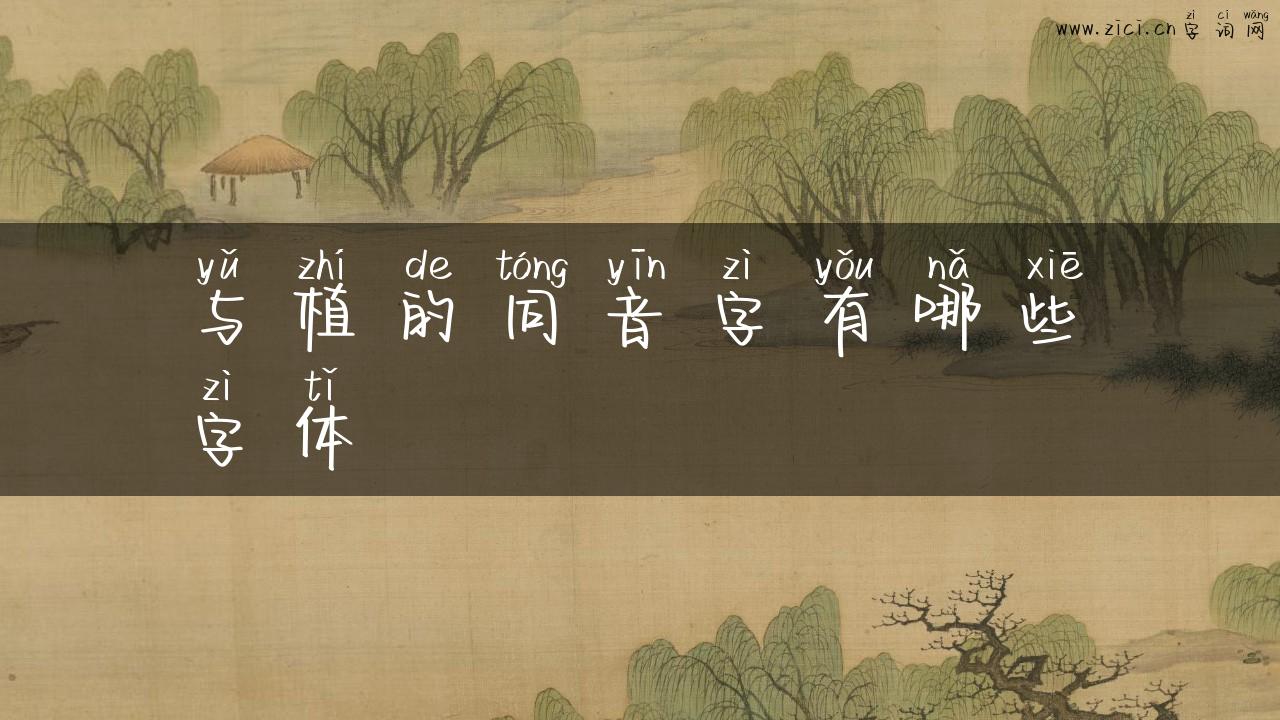 zì cí wǎng
www.zici.cn 字 词 网
yǔ zhí de tóng yīn zì yǒu nǎ xiē
与 植 的 同 音 字 有 哪 些
zì tǐ
字 体